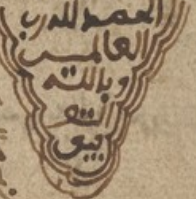 الحمد لله رب
العالمين
وبالله
التو
فيق